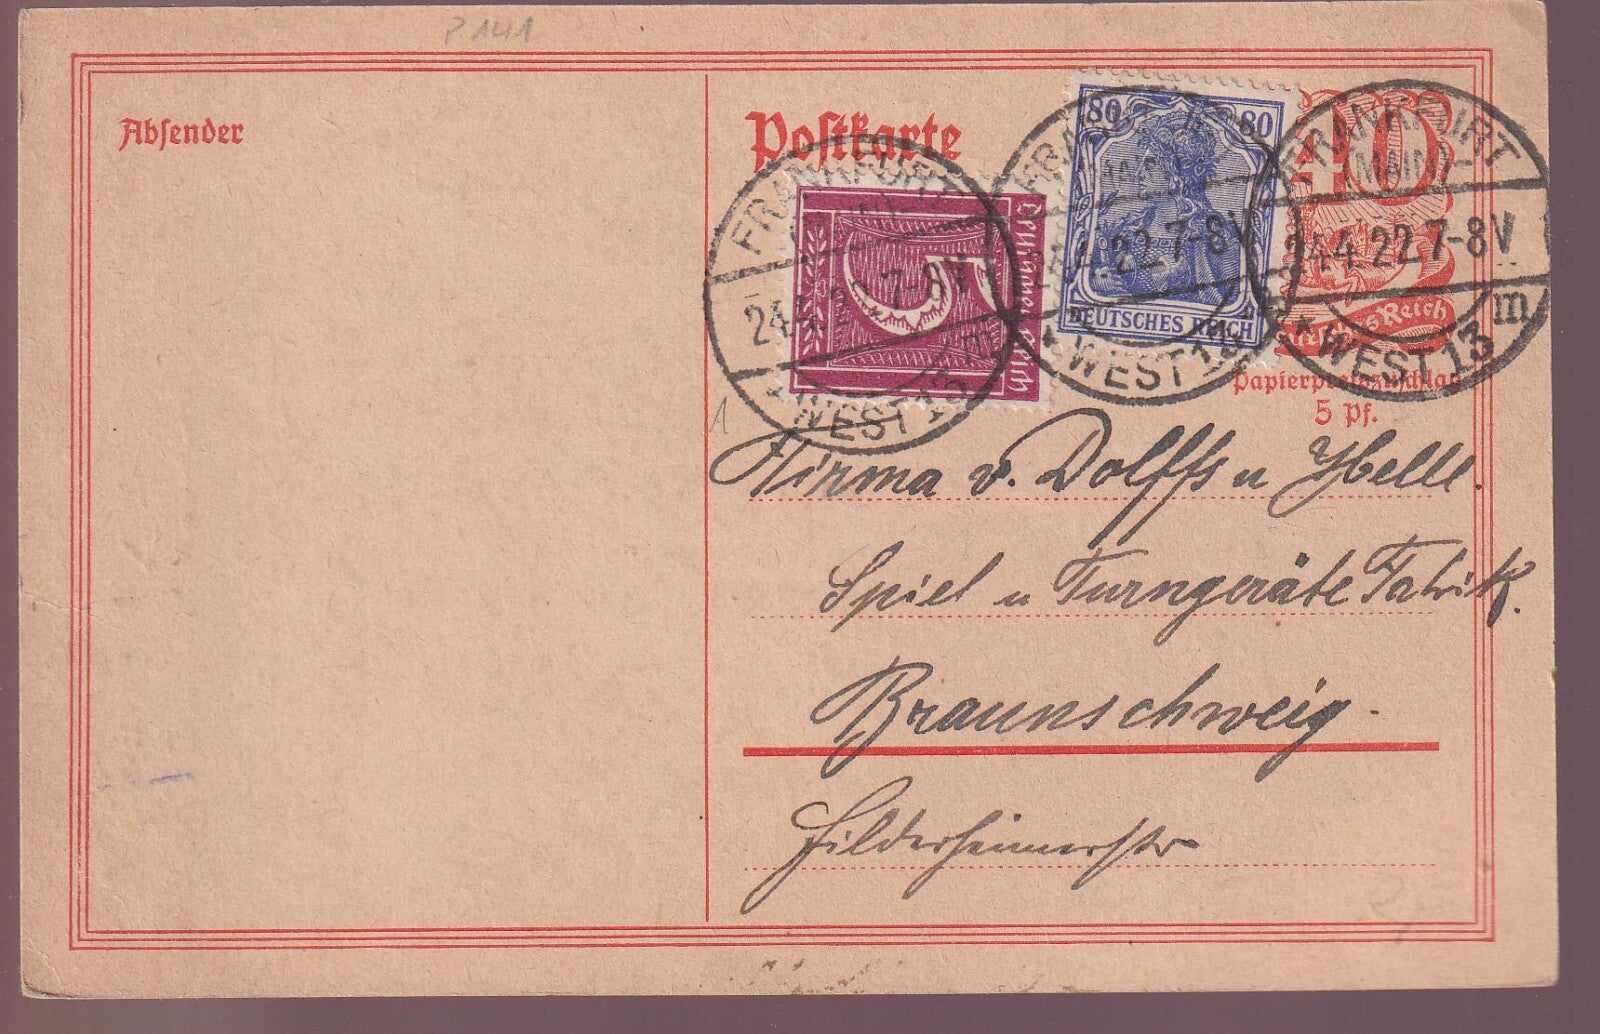 P 141
Absender
Postkarte
40
Deutsches Reich
Papierpreiszuschlag
5 Pf.
5
Deutsches Reich
80 80
DEUTSCHES REICH
FRANKFURT
(MAIN)
24.4.22.7-8V
* WEST 13
FRANKFURT
(MAIN)
24.4.22.7-8V
* WEST 13
FRANKFURT
(MAIN)
24.4.22.7-8V
m
* WEST 13
1
Firma v. Dolffs u Helle.
Spiel u Turngeräte Fabrik.
Braunschweig.
Hildesheimerstr